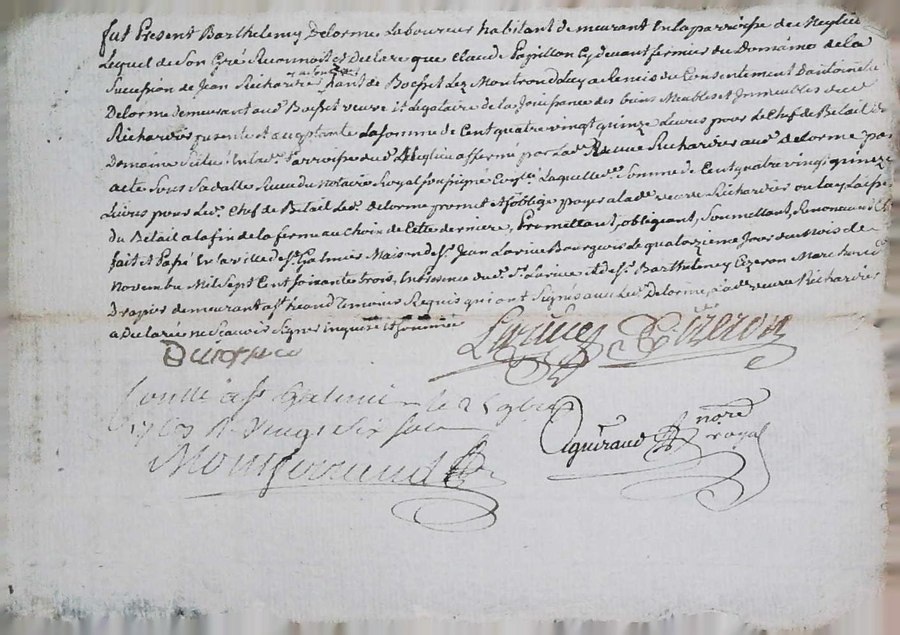 fut Present Barthelemy Delorme Laboureur habitant demeurant en la parroisse de Neglieu
Lequel de son Gré Reconnoit et Declare que Claude Papillon Cydevant fermier du Domaine de la
Succession de Jean Richardier vivant de Boisset Lez Montrond Luy a Remis du Consentement d'antoinette
Delorme demeurant aud. Boisset veuve et Legataire de la Jouissance des biens Meubles et Immeubles dud.
Richardier presente et acceptante La somme de Cent quatre vingt quinze Livres pour le Chef de Betail du
Domaine Situé En lad. Parroisse du Neglieu affermé par lad. veuve Richardier aud. delorme par
acte sous Sa datte Receu du Notaire Royal soussigné Laquelle somme de Cent quatre vingt quinze
Livres pour led. Chef de Betail led. delorme promet et s'oblige payer a lad. veuve Richardier ou luy Laisser
du Betail a la fin de la ferme au choix de Cette derniere, Promettant, obligeant, Soumettant, Renonceant &
fait et Passé En la ville de St. Galmier Maison de Sr. Jean Larive Bourgeois le quatorzieme Jour du Mois de
Novembre Mil Sept Cent Soixante trois, En presence dud. Sr. Larive et de Sr. Barthelemy Cizeron Marchand
Drapier demeurant a St. heand Temoins Requis qui ont Signés avec led. Delorme, Lad. veuve Richardier
a Declarée ne Sçavoir Signer enquise et sommée
Larive Cizeron
Conllé a St. Galmier le
1763 R. vingt six sols
Montferrand
Aguiraud nore
royal